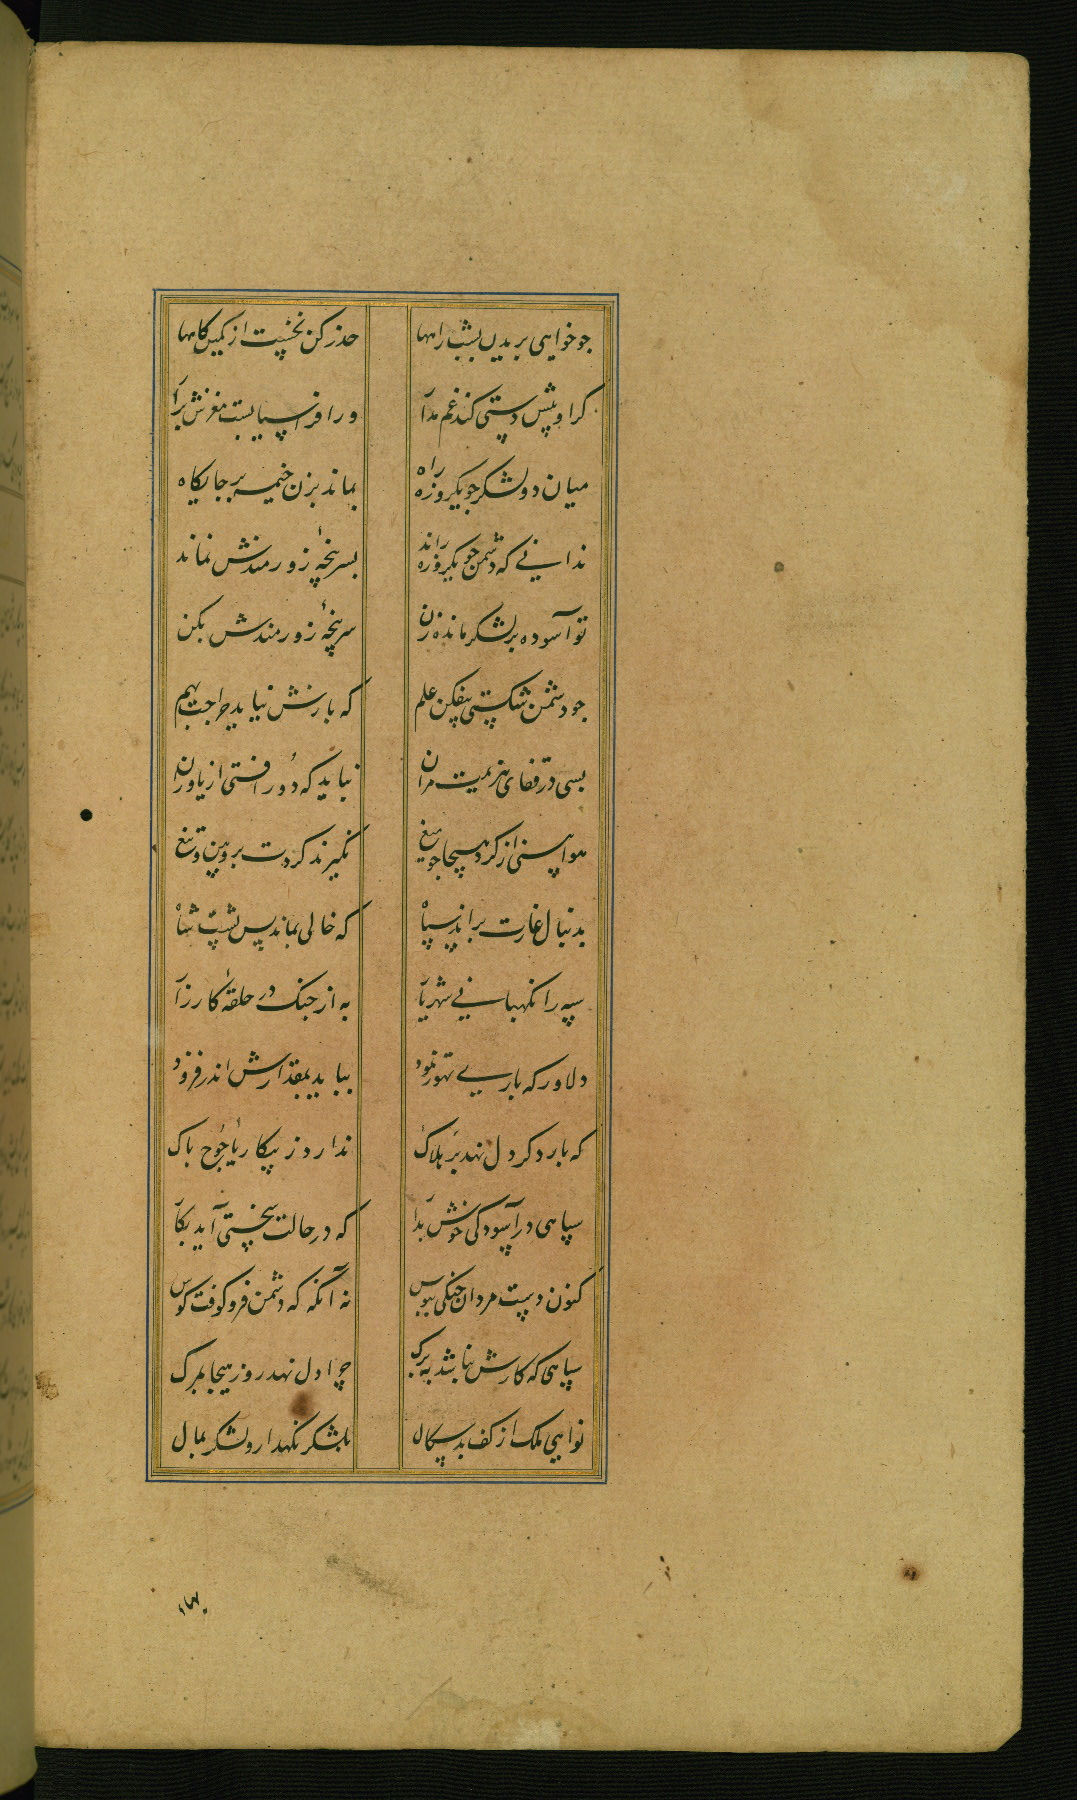 جو خواهی بریدن بشب راهها حذر کن نخست از کمین کاهها
کر او پیش دستی کند غم مدار ور افراسیابست مغزش برآر
میان دو لشکر جو یکروزه راه بماند بزن خیمه بر جایکاه
ندانی که دشمن جو یکروزه راند بسرپنجهٔ زورمندش نماند
تو آسوده بر لشکر مانده زن سرپنجهٔ زورمندش بکن
جو دشمن شکستی بیفکن علم که بازش نیاید جراحت بهم
بسی در قفای هزیمت مران نباید که دور افتی از یاوران
هوا بینی از کرد هیجا جو میغ بکیرند کردت بزوبین و تیغ
بدنبال غارت براند سپاه که خالی بماند پس پشت شاه
سپه را نکهبانی شهریار به از جنک در حلقهٔ کارزار
دلاور که باری تهور نمود بباید بمقدارش اندر فزود
که بار دکر دل نهد بر هلاک ندارد ز پیکار یاجوج باک
سپاهی در آسودکی خوش بدار که در حالت سختی آید بکار
کنون دست مردان جنکی ببوس نه آنکه که دشمن فرو کوفت کوس
سپاهی که کارش نباشد به برک چرا دل نهد روز هیجا بمرک
نواحی ملک از کف بدسکال بلشکر نکهدار و لشکر بمال